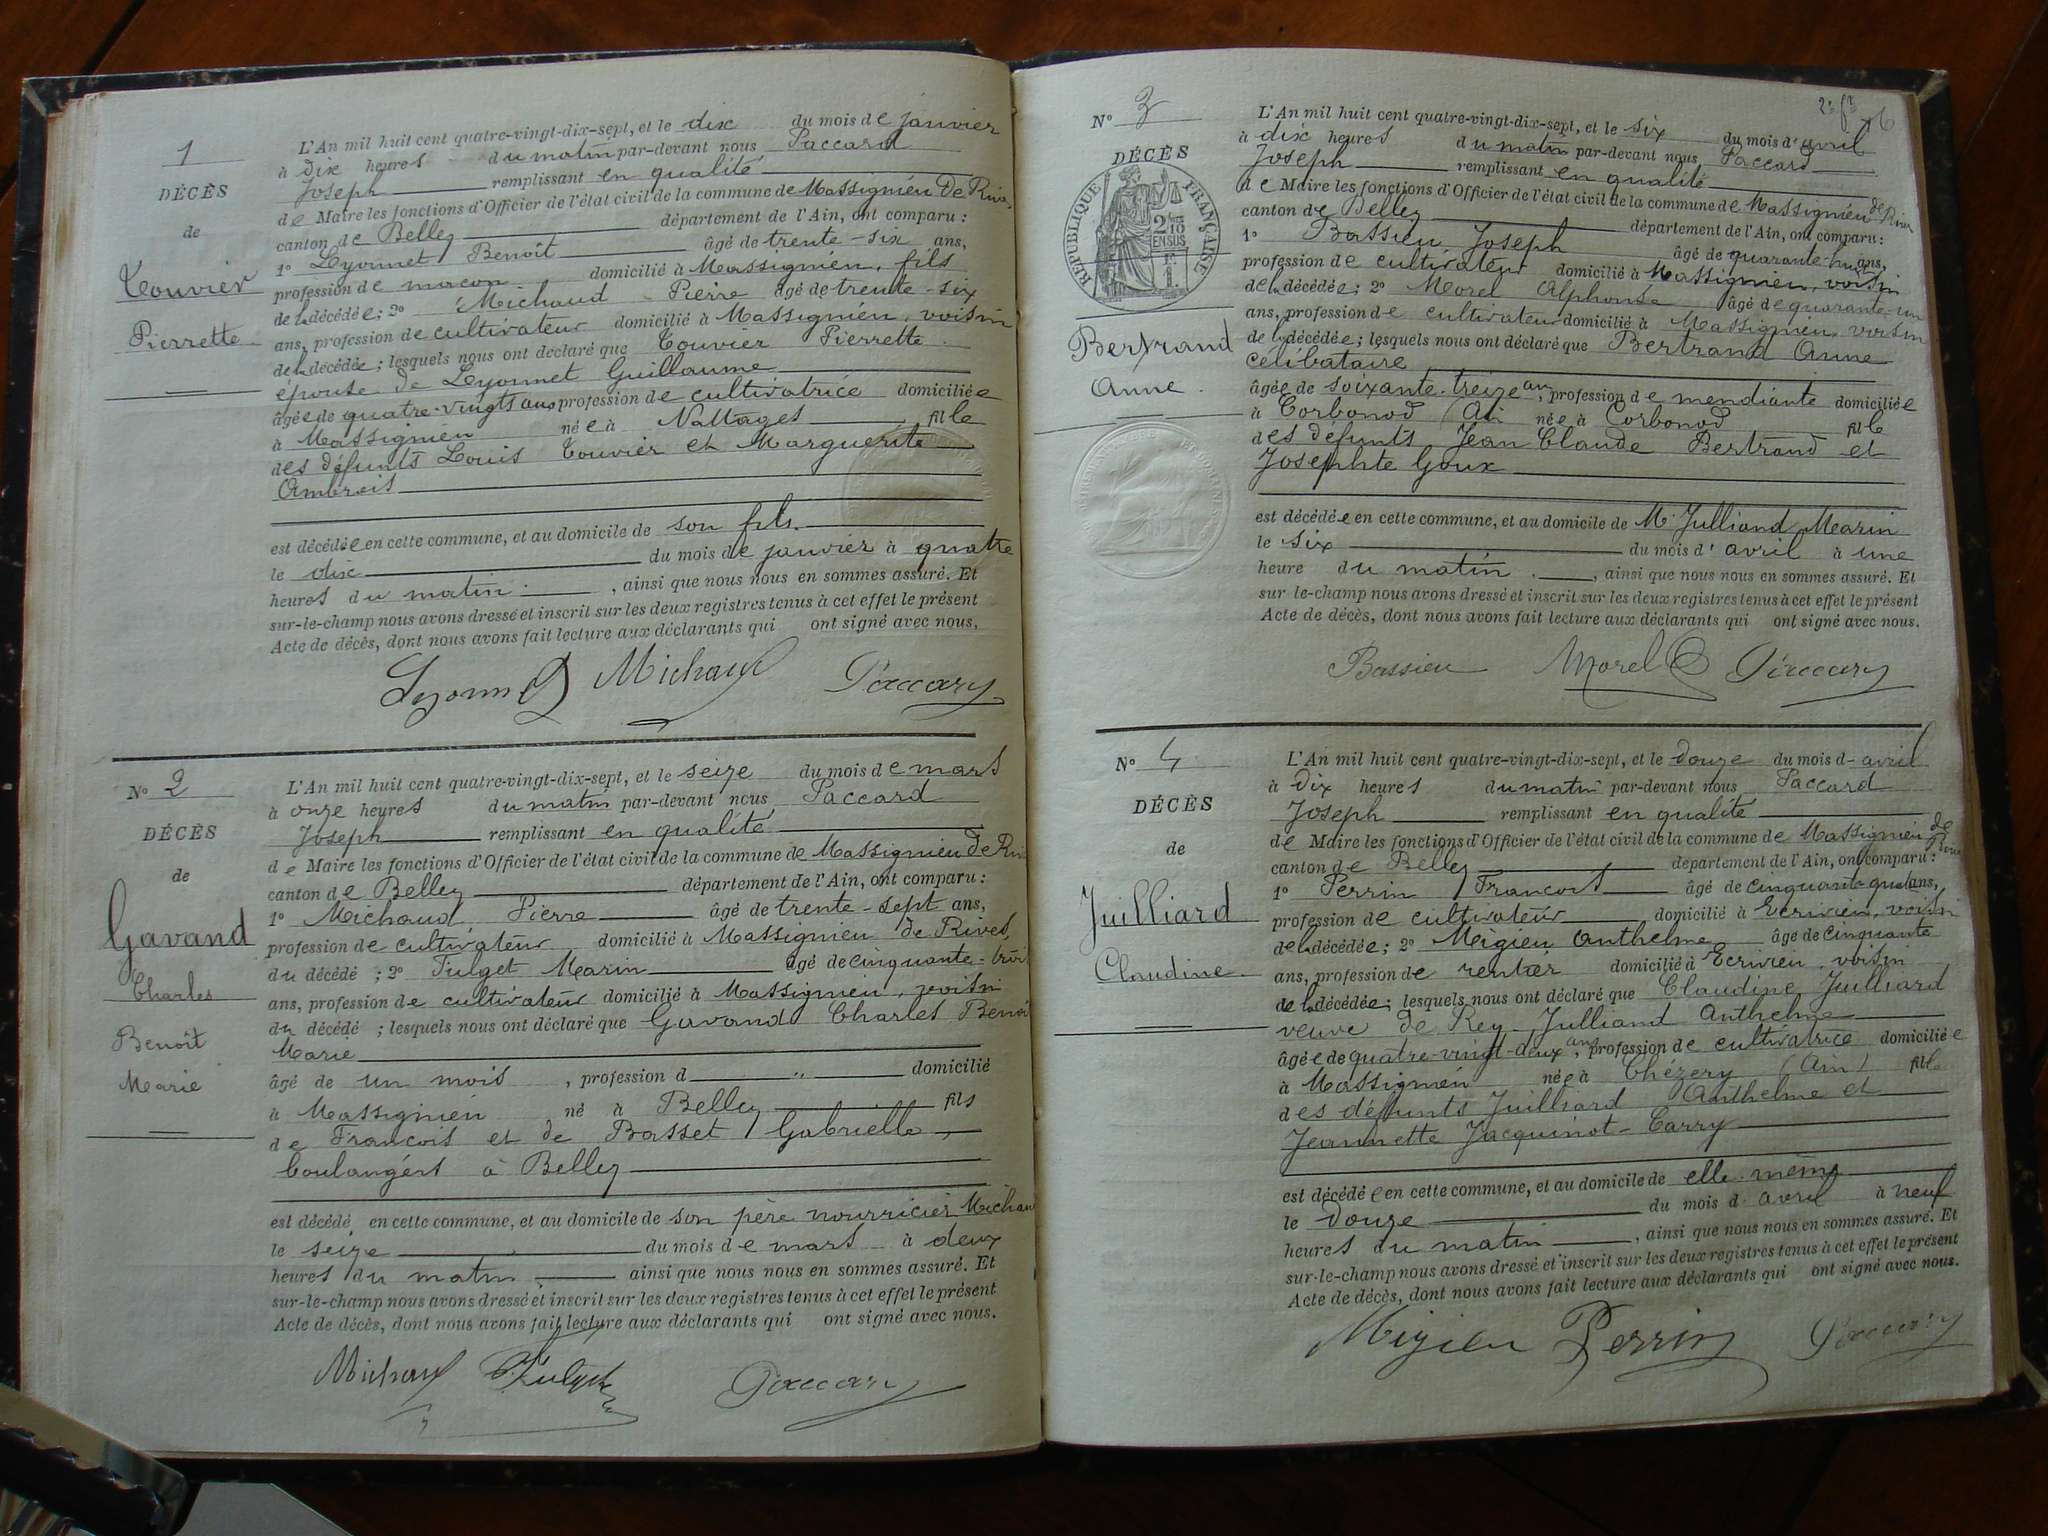 1
DÉCÈS
de
Touvier
Pierrette
L'An mil huit cent quatre-vingt-dix-sept, et le dix du mois de janvier
à dix heures du matin par-devant nous Paccard
Joseph remplissant en qualité
de Maire les fonctions d'Officier de l'état civil de la commune de Massignieu de Rives
canton de Belley département de l'Ain, ont comparu :
1° Lyonnet Benoît âgé de trente-six ans,
profession de maçon domicilié à Massignieu, fils
de la décédée ; 2° Michaud Pierre âgé de trente-six
ans, profession de cultivateur domicilié à Massignieu, voisin
de la décédée ; lesquels nous ont déclaré que Touvier Pierrette
épouse de Lyonnet Guillaume
âgée de quatre-vingts ans profession de cultivatrice domiciliée
à Massignieu née à Nattages fille
des défunts Louis Touvier et Marguerite
Ambrois
est décédée en cette commune, et au domicile de son fils.
le dix du mois de janvier à quatre
heures du matin , ainsi que nous nous en sommes assuré. Et
sur-le-champ nous avons dressé et inscrit sur les deux registres tenus à cet effet le présent
Acte de décès, dont nous avons fait lecture aux déclarants qui ont signé avec nous.
Lyonnet Michaud Paccard
N° 2
DÉCÈS
de
Gavand
Charles
Benoît
Marie
L'An mil huit cent quatre-vingt-dix-sept, et le seize du mois de mars
à onze heures du matin par-devant nous Paccard
Joseph remplissant en qualité
de Maire les fonctions d'Officier de l'état civil de la commune de Massignieu de Riv
canton de Belley département de l'Ain, ont comparu :
1° Michaud Pierre âgé de trente-sept ans,
profession de cultivateur domicilié à Massignieu de Rives,
du décédé ; 2° Fulget Marin âgé de cinquante-troi
ans, profession de cultivateur domicilié à Massignieu, voisin
du décédé ; lesquels nous ont déclaré que Gavand Charles Benoi
Marie
âgé de un mois , profession d " domicilié
à Massignieu né à Belley fils
de François et de Basset Gabrielle,
boulangers à Belley
est décédé en cette commune, et au domicile de son père nourricier Michau
le seize du mois de mars à deux
heures du matin ainsi que nous nous en sommes assuré. Et
sur-le-champ nous avons dressé et inscrit sur les deux registres tenus à cet effet le présent
Acte de décès, dont nous avons fait lecture aux déclarants qui ont signé avec nous.
Michaud Fulget Paccard
N° 3
DÉCÈS
RÉPUBLIQUE FRANÇAISE
2/10 EN SUS
F. 1.
Bertrand
Anne
L'An mil huit cent quatre-vingt-dix-sept, et le six du mois d'avril
à dix heures du matin par-devant nous Paccard
Joseph remplissant en qualité
de Maire les fonctions d'Officier de l'état civil de la commune de Massignieu de Rives
canton de Belley département de l'Ain, ont comparu :
1° Bassieu Joseph âgé de quarante-huit ans,
profession de cultivateur domicilié à Massignieu, voisin
de la décédée ; 2° Morel Alphonse âgé de quarante-un
ans, profession de cultivateur domicilié à Massignieu voisin
de la décédée ; lesquels nous ont déclaré que Bertrand Anne
célibataire
âgée de soixante-treize ans, profession de mendiante domiciliée
à Corbonod (Ain née à Corbonod fille
des défunts Jean Claude Bertrand et
Josephte Goux
est décédée en cette commune, et au domicile de Mr Julliand Marin
le six du mois d'avril à une
heure du matin. , ainsi que nous nous en sommes assuré. Et
sur-le-champ nous avons dressé et inscrit sur les deux registres tenus à cet effet le présent
Acte de décès, dont nous avons fait lecture aux déclarants qui ont signé avec nous.
Bassieu Morel Paccard
N° 4
DÉCÈS
de
Juilliard
Claudine
L'An mil huit cent quatre-vingt-dix-sept, et le douze du mois d'avril
à dix heures du matin par-devant nous Paccard
Joseph remplissant en qualité
de Maire les fonctions d'Officier de l'état civil de la commune de Massignieu de Rives
canton de Belley département de l'Ain, ont comparu :
1° Perrin François âgé de cinquante-quat ans,
profession de cultivateur domicilié à Ecrivieu, voisin
de la décédée ; 2° Migieu Anthelme âgé de cinquante
ans, profession de rentier domicilié à Ecrivieu voisin
de la décédée ; lesquels nous ont déclaré que Claudine Juilliard
veuve de Rey-Julliand Anthelme
âgée de quatre-vingt-deux ans, profession de cultivatrice domiciliée
à Massignieu née à Chézery (Ain) fille
des défunts Juilliard Anthelme et
Jeannette Jacquinot-Carry
est décédée en cette commune, et au domicile de elle-même
le douze du mois d'avril à neuf
heures du matin , ainsi que nous nous en sommes assuré. Et
sur-le-champ nous avons dressé et inscrit sur les deux registres tenus à cet effet le présent
Acte de décès, dont nous avons fait lecture aux déclarants qui ont signé avec nous.
Migieu Perrin Paccard